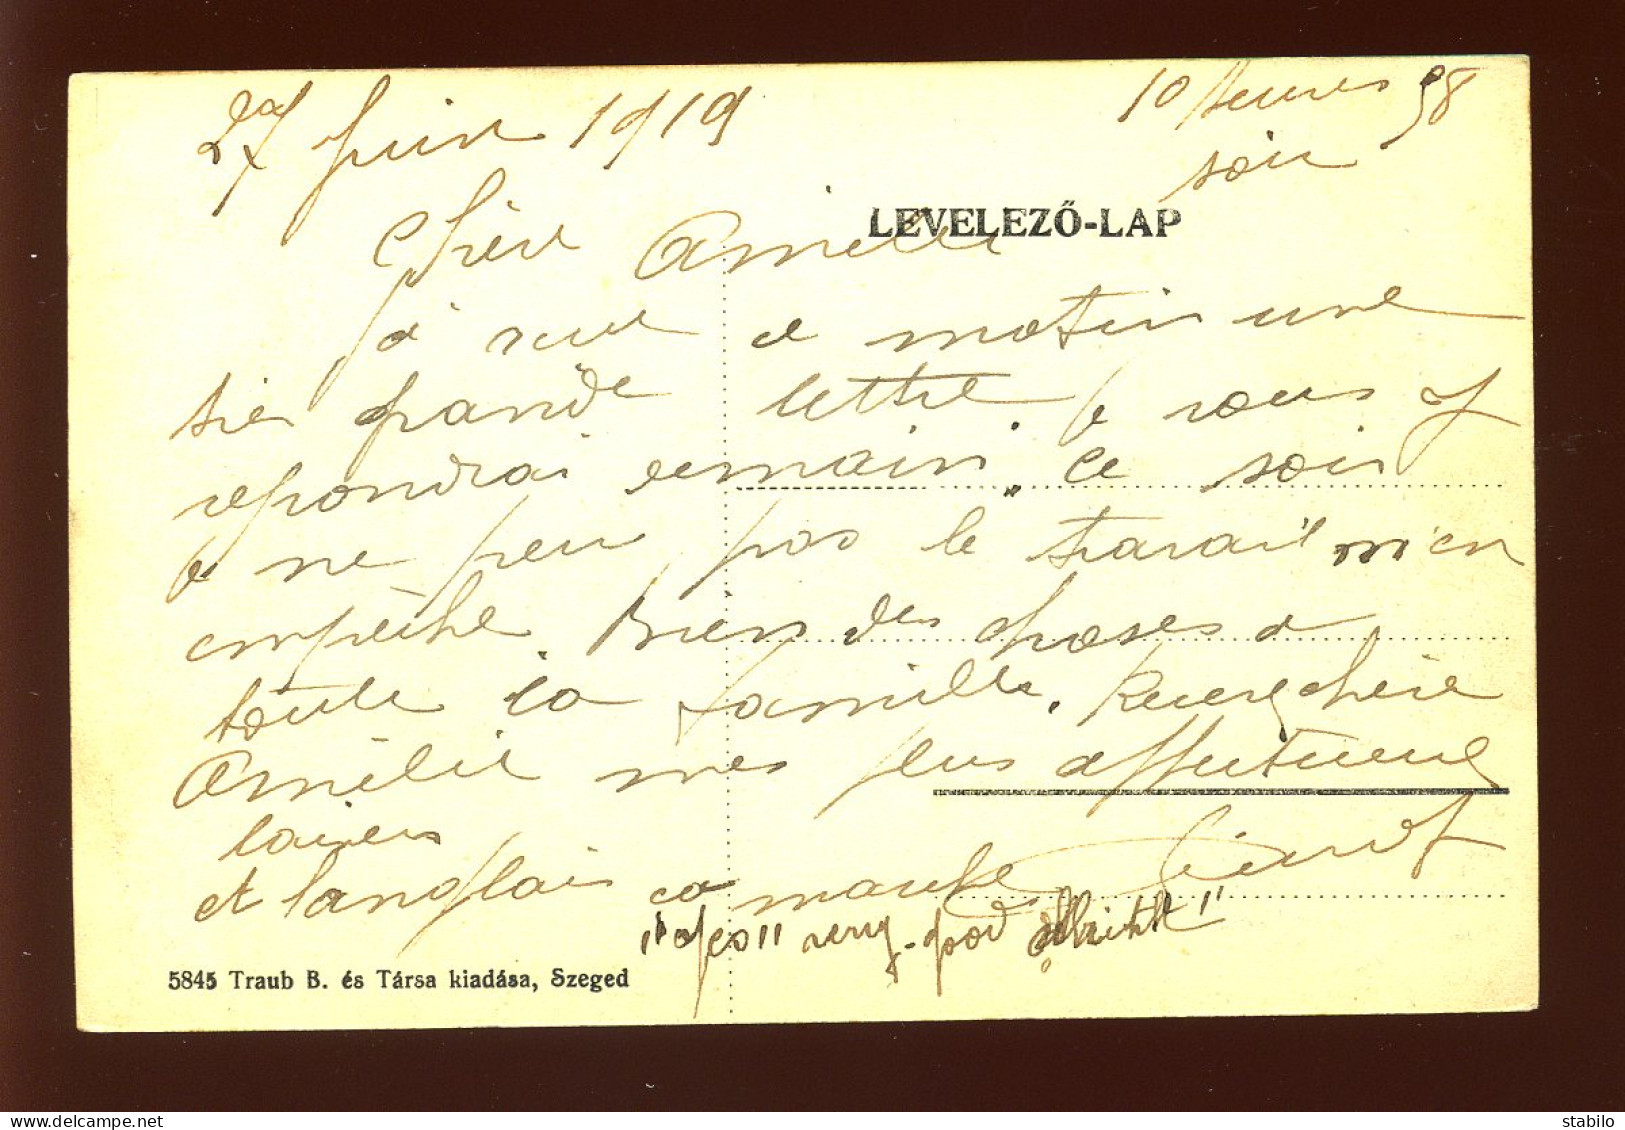 27 juin 1919
10 heures 58
soir
LEVELEZŐ-LAP
Chère Amélie
a matin une
très grande lettre. Je vous y
repondrai demain. Ce soir
je ne peu pas le travail m'en
empêche. Bien des choses a
toute la famille. Recevez chère
Amélie mes plus affectueux
baisers
et l'anglais ça marche
"yes" very-good
5845 Traub B. és Társa kiadása, Szeged
stabilo